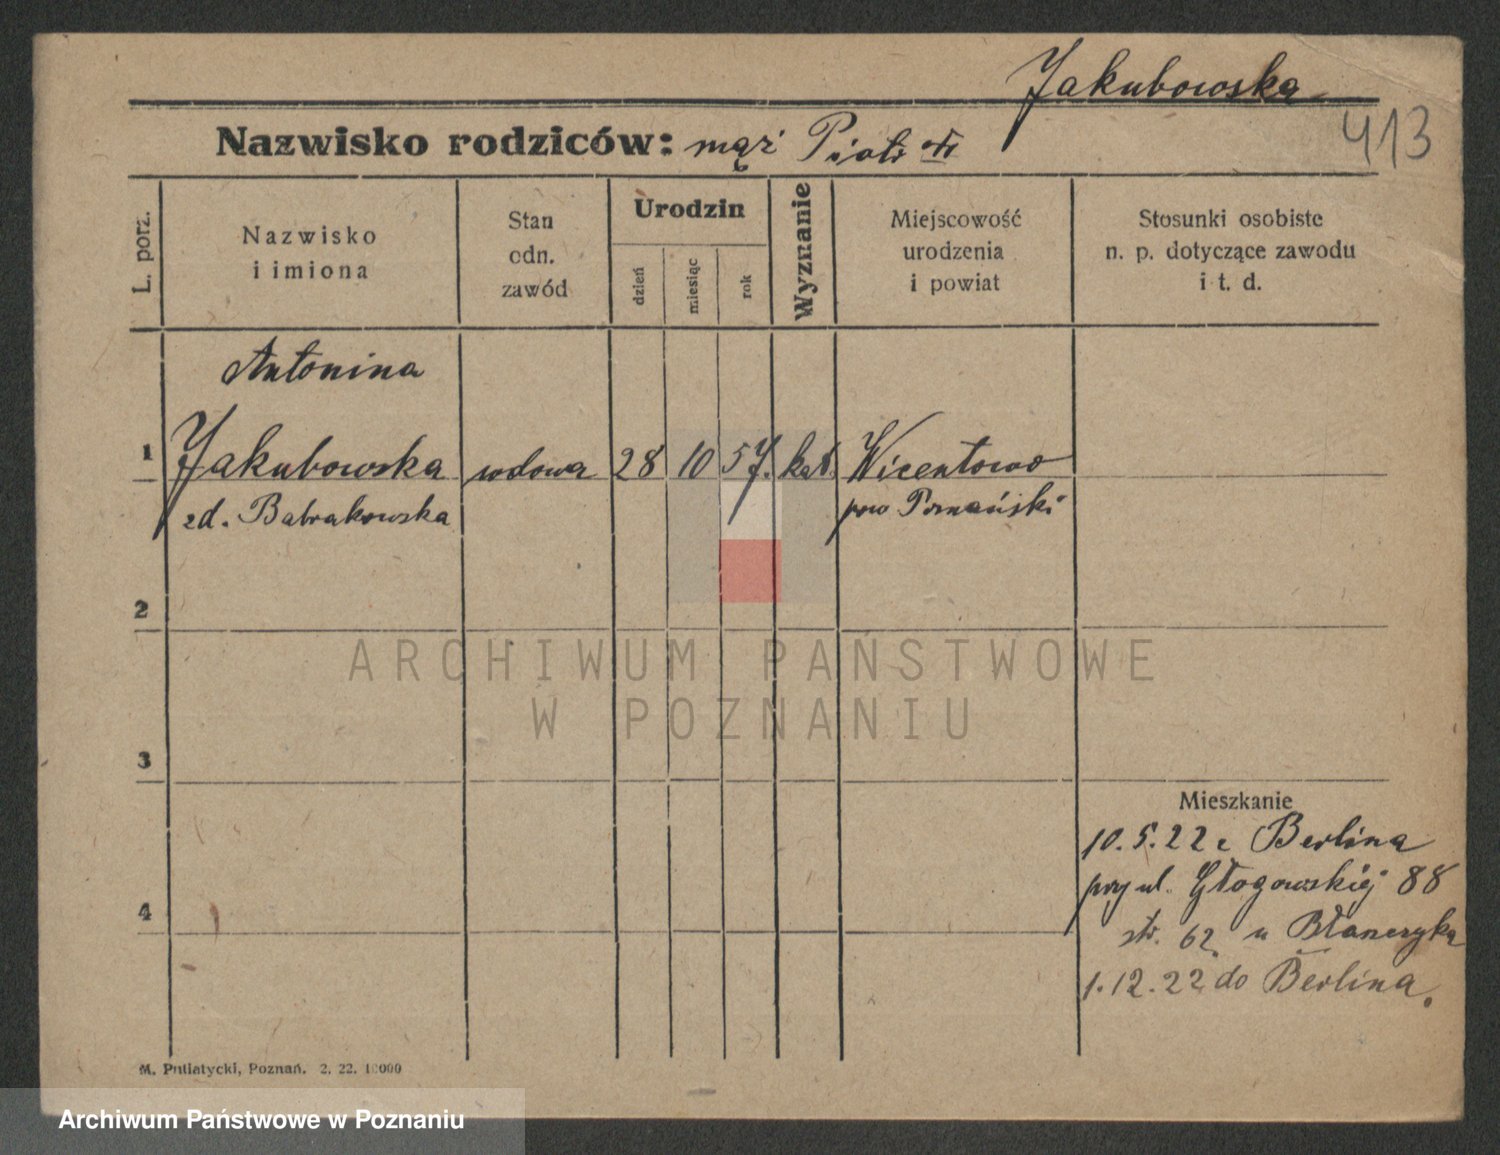 Jakubowska
413
Nazwisko rodziców: mąż Piotr
L. porz.
Nazwisko
i imiona
Stan
odn.
zawód
Urodzin
dzień
miesiąc
rok
Wyznanie
Miejscowość
urodzenia
i powiat
Stosunki osobiste
n. p. dotyczące zawodu
i t. d.
Antonina
1 Jakubowska wdowa 28 10 57. kat. Wicentowo
zd. Babrakowska pow Poznański
2
ARCHIWUM PAŃSTWOWE
W POZNANIU
3
Mieszkanie
10.5.22 z Berlina
przy ul. Głogowskiej 88
4
str. 62 u
1.12.22 do Berlina.
M. Putiatycki, Poznań. 2. 22. 10000
Archiwum Państwowe w Poznaniu